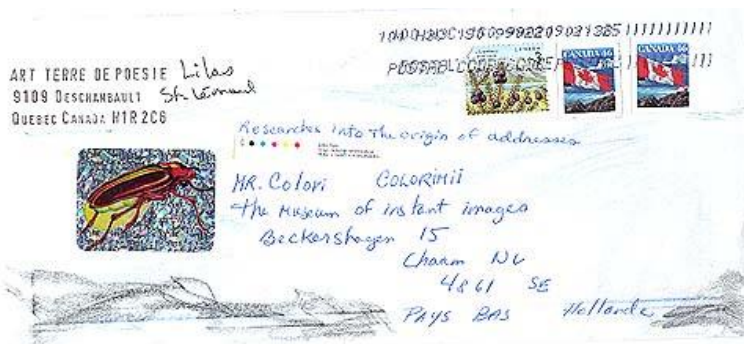 ART TERRE DE POESIE Lilas
9109 DESCHAMBAULT St. Léonard
QUEBEC CANADA H1R 2C6
CANADA 46
CANADA 46
Researches into the origin of addresses
MR. Colori COLORIMII
The Museum of instant images
Beckershagen 15
Chaam NL
4861 SE
PAYS BAS Hollande